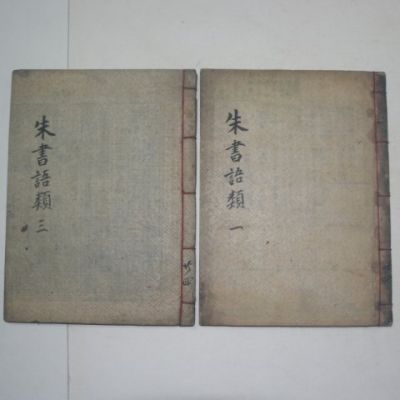 朱書語類 一
朱書語類 三
共四